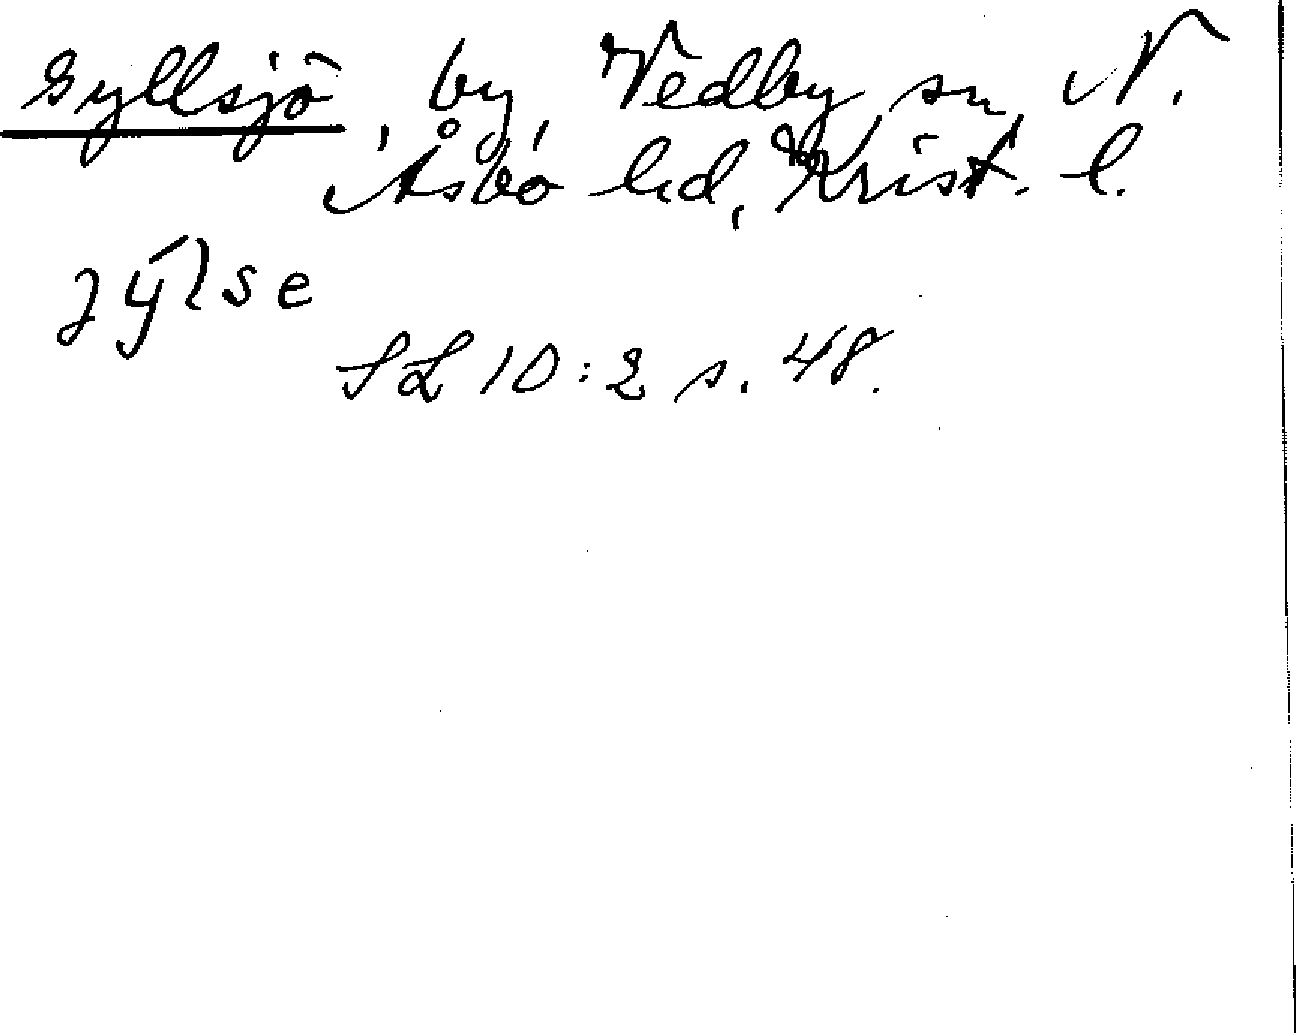 Gyllsjö, by, Vedby sn, N.
Åsbo hd, Krist. l.
jýlse
SL 10:2 s. 48.